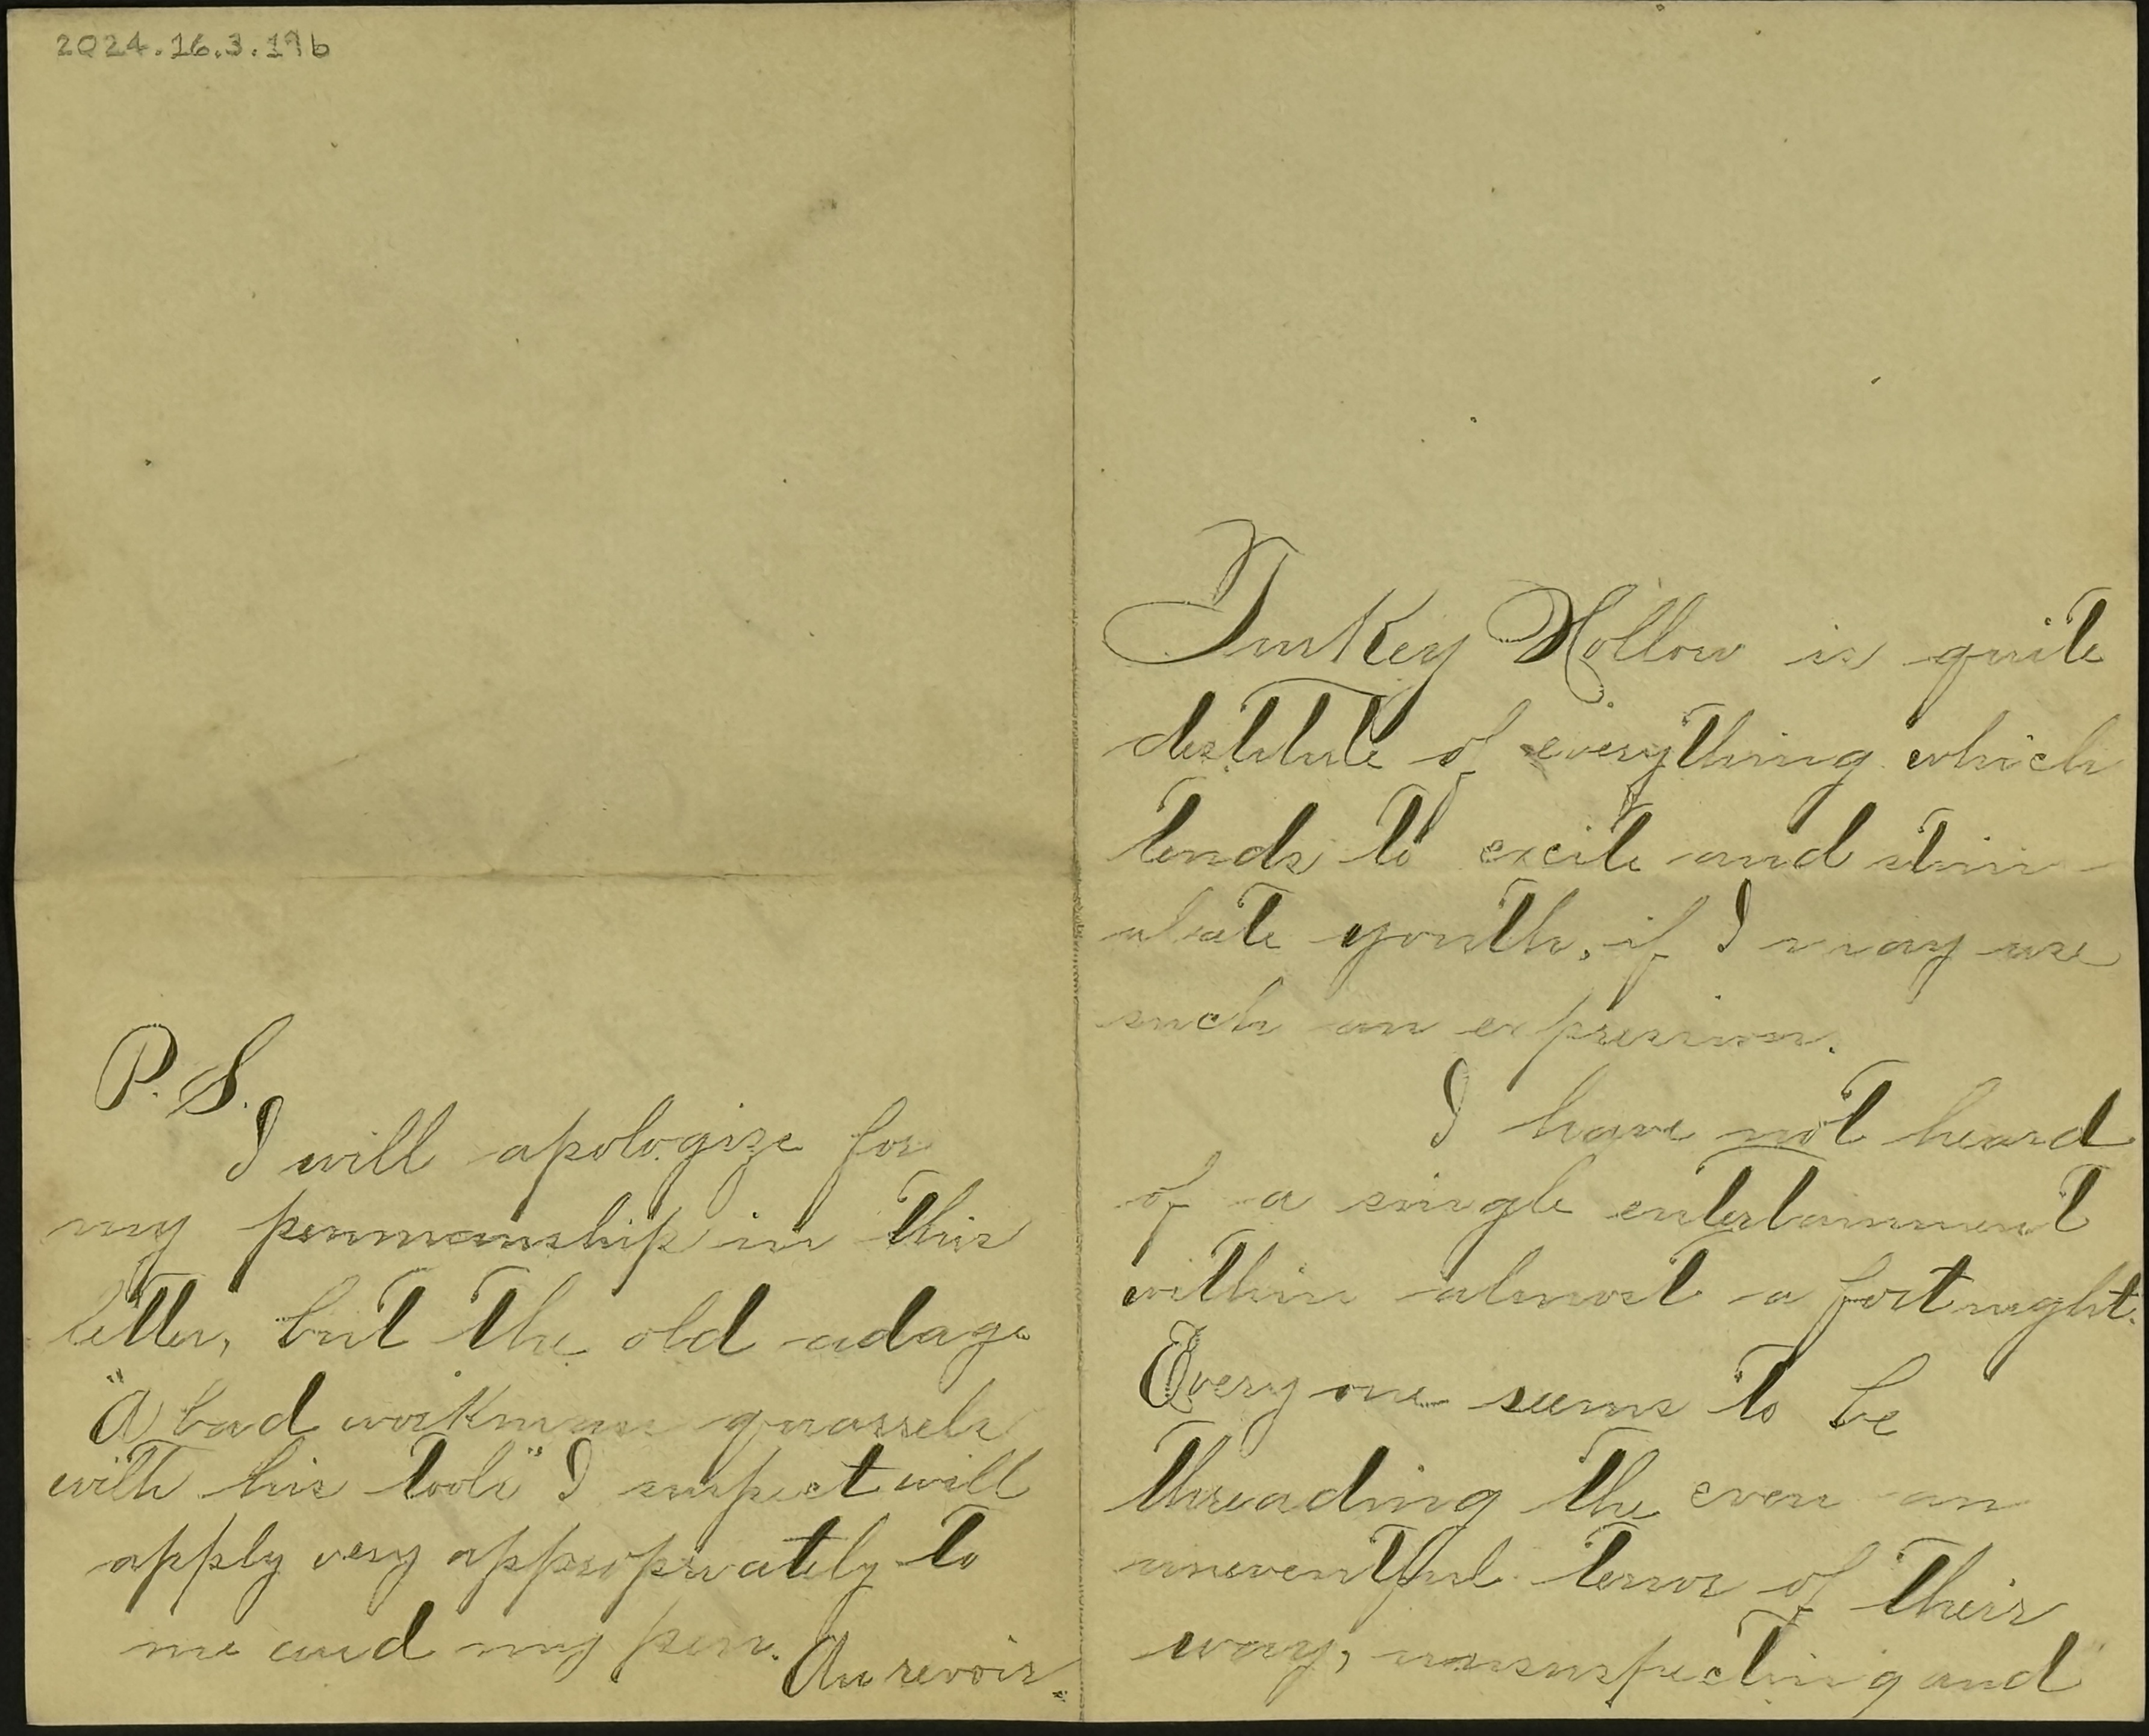 2024.16.3.19b
P. S.
I will apologize for
my penmanship in this
letter, but the old adage
"A bad workman quarrels
with his tools" I suspect will
apply very appropriately to
me and my pen.
Au revoir.
Turkey Hollow is quite
destitute of everything which
tends to excite and stim-
ulate youth, if I may use
such an expression.
I have not heard
of a single entertainment
within almost a fortnight.
Every one seems to be
threading the even an
uneventful tenor of their
way, unsuspecting and